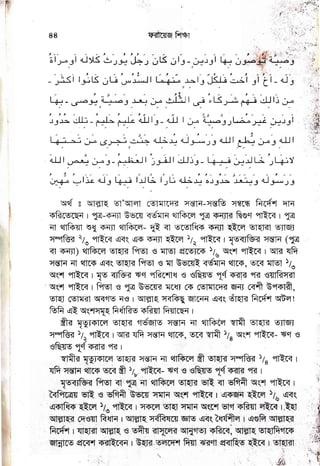 ৪৪ ফরায়েজ শিক্ষা
وصية توصون بها اودين ۔ وان كان رجل يورث كلالة اومراة
وله ۔ اخ او اخت فلكل واحد منهما السدس فان كانوا اكثر ۔
من ذالك فهم شركاء فى الثلث من بعد وصية يوصى ۔ بها
اودين غيرمضاروصية من الله ۔ والله عليم حليم ۔ تلك حدود
الله ومن يطع الله ورسوله يدخله جنت تجرى من تحتها
لانهار خالدين فيها ۔ وذلك الفوز العظيم ۔ ومن يعص الله
ورسوله ويتعد حدوده يدخله نارا خالدا فيها وله عذاب مهين
অর্থ ঃ আল্লাহ তা'আলা তোমাদের সন্তান-সন্ততি সম্বন্ধে নির্দেশ দান
করিতেছেন। পুত্র-কন্যা উভয়ে বর্তমান থাকিলে পুত্র কন্যার দ্বিগুণ পাইবে। পুত্র
না থাকিয়া শুধু কন্যা থাকিলে- দুই বা ততোধিক কন্যা হইলে তাহারা ত্যাজ্য
সম্পত্তির ২/৩ পাইবে এবং এক কন্যা হইলে ১/২ পাইবে। মৃতব্যক্তির সন্তান (পুত্র
বা কন্যা) থাকিলে তাহার পিতা ও মাতা প্রত্যেকে ১/৬ অংশ পাইবে। আর যদি
সন্তান না থাকে এবং তাহার পিতা ও মা উভয়েই বর্তমান থাকে, তবে মাতা ১/৩
অংশ পাইবে। মৃত ব্যক্তির ঋণ পরিশোধ ও ওছিয়ত পূর্ণ করার পর ওয়ারিসরা
অংশ পাইবে। পিতা ও পুত্র উভয়ের মধ্যে কে তোমাদের জন্য বেশী উপকারী,
তাহা তোমরা অবগত নও। আল্লাহ সবকিছু জানেন এবং তাঁহার নির্দেশ অটল।
তিনি এই অংশসমূহ নির্ধারিত করিয়া দিয়াছেন।
স্ত্রীর মৃত্যুকালে তাহার গর্ভজাত সন্তান না থাকিলে স্বামী তাহার ত্যাজ্য
সম্পত্তির ১/২ পাইবে। আর যদি সন্তান থাকে, তবে স্বামী ১/৪ অংশ পাইবে- ঋণ ও
ওছিয়ত পূর্ণ করার পর।
স্বামীর মৃত্যুকালে তাহার সন্তান না থাকিলে স্ত্রী তাহার সম্পত্তির ১/৪ পাইবে।
যদি সন্তান থাকে তবে স্ত্রী ১/৮ পাইবে- ঋণ ও ওছিয়ত পূর্ণ করার পর।
মৃতব্যক্তির পিতা বা পুত্র না থাকিলে তাহার ভাই বা ভগিনী অংশ পাইবে।
বৈপিত্রেয় ভাই ও ভগিনী উভয়ে সমান অংশ পাইবে। একজন হইলে ১/৬ এবং
একাধিক হইলে ১/৩ পাইবে। সকলে তাহা সমান অংশে ভাগ করিয়া লইবে। ইহা
আল্লাহর দেওয়া বিধান। আল্লাহ সর্ববিষয়ে জ্ঞাত এবং ধৈর্যশীল। এগুলি আল্লাহর
নির্দেশ। যাহারা আল্লাহ ও তদীয় রাসূলের আনুগত্য করিবে, আল্লাহ তাহাদিগকে
জান্নাতে প্রবেশ করাইবেন। উহার তলদেশ দিয়া ঝরণা প্রবাহিত হইবে। তাহারা